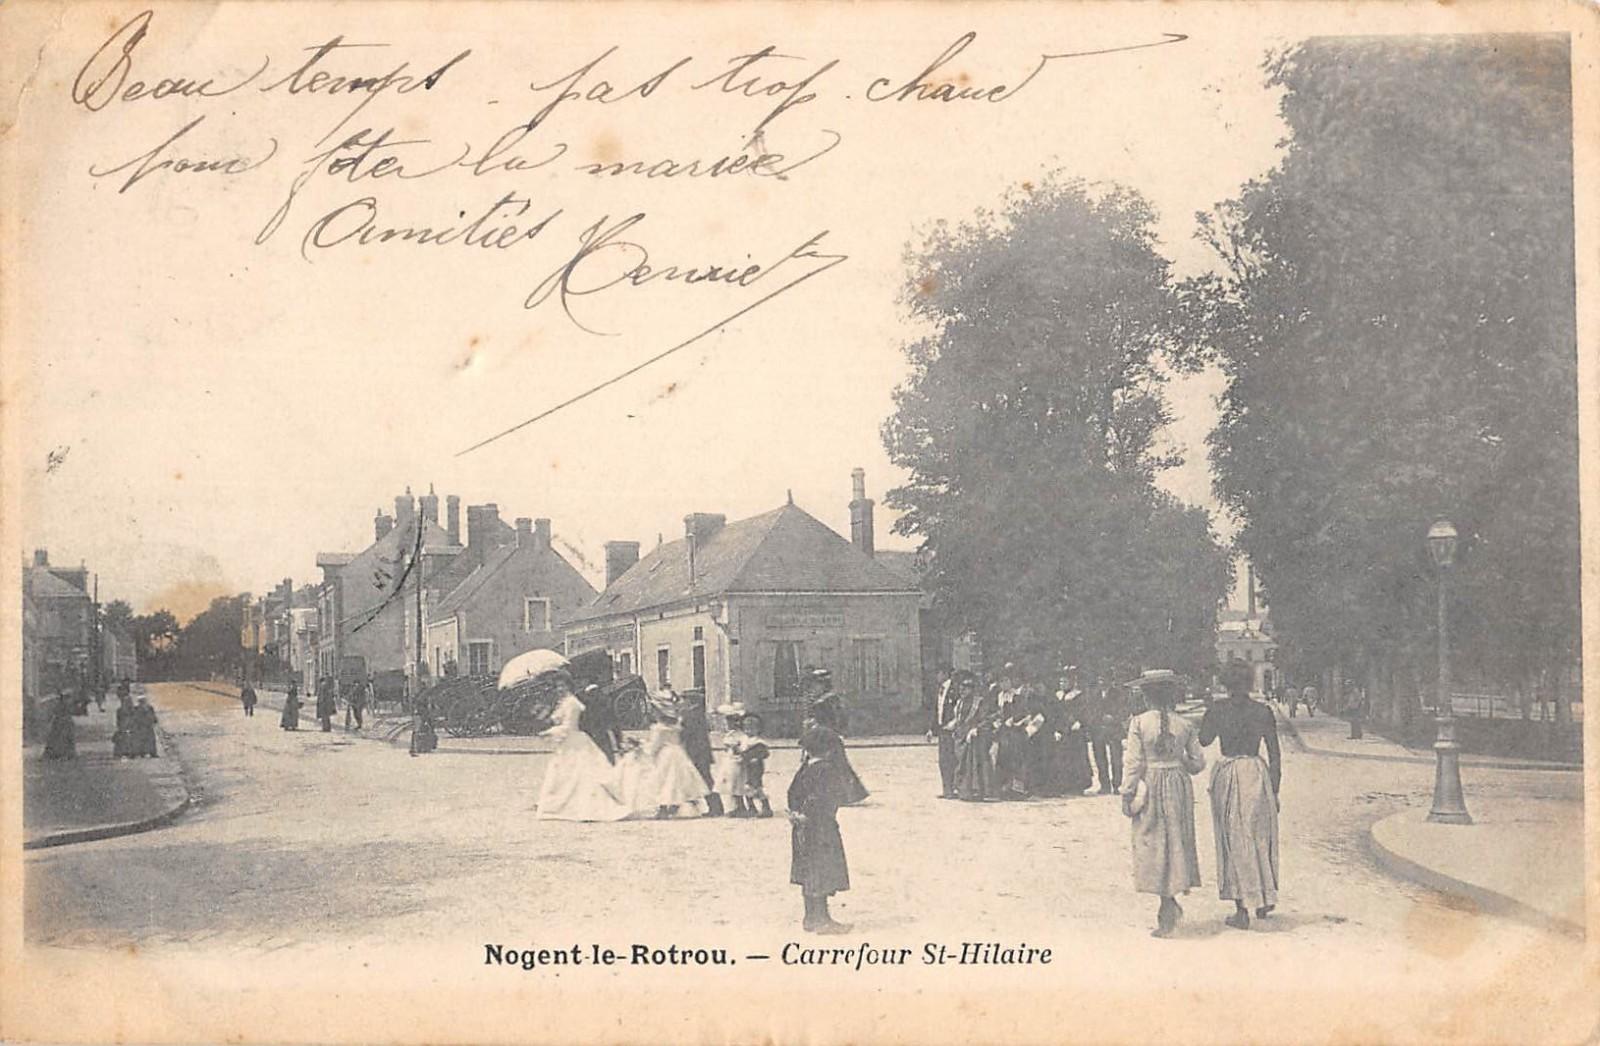 Beau temps - pas trop chaud
pour fêter la mariée
Amitiés
Henriette
Nogent-le-Rotrou. — Carrefour St-Hilaire